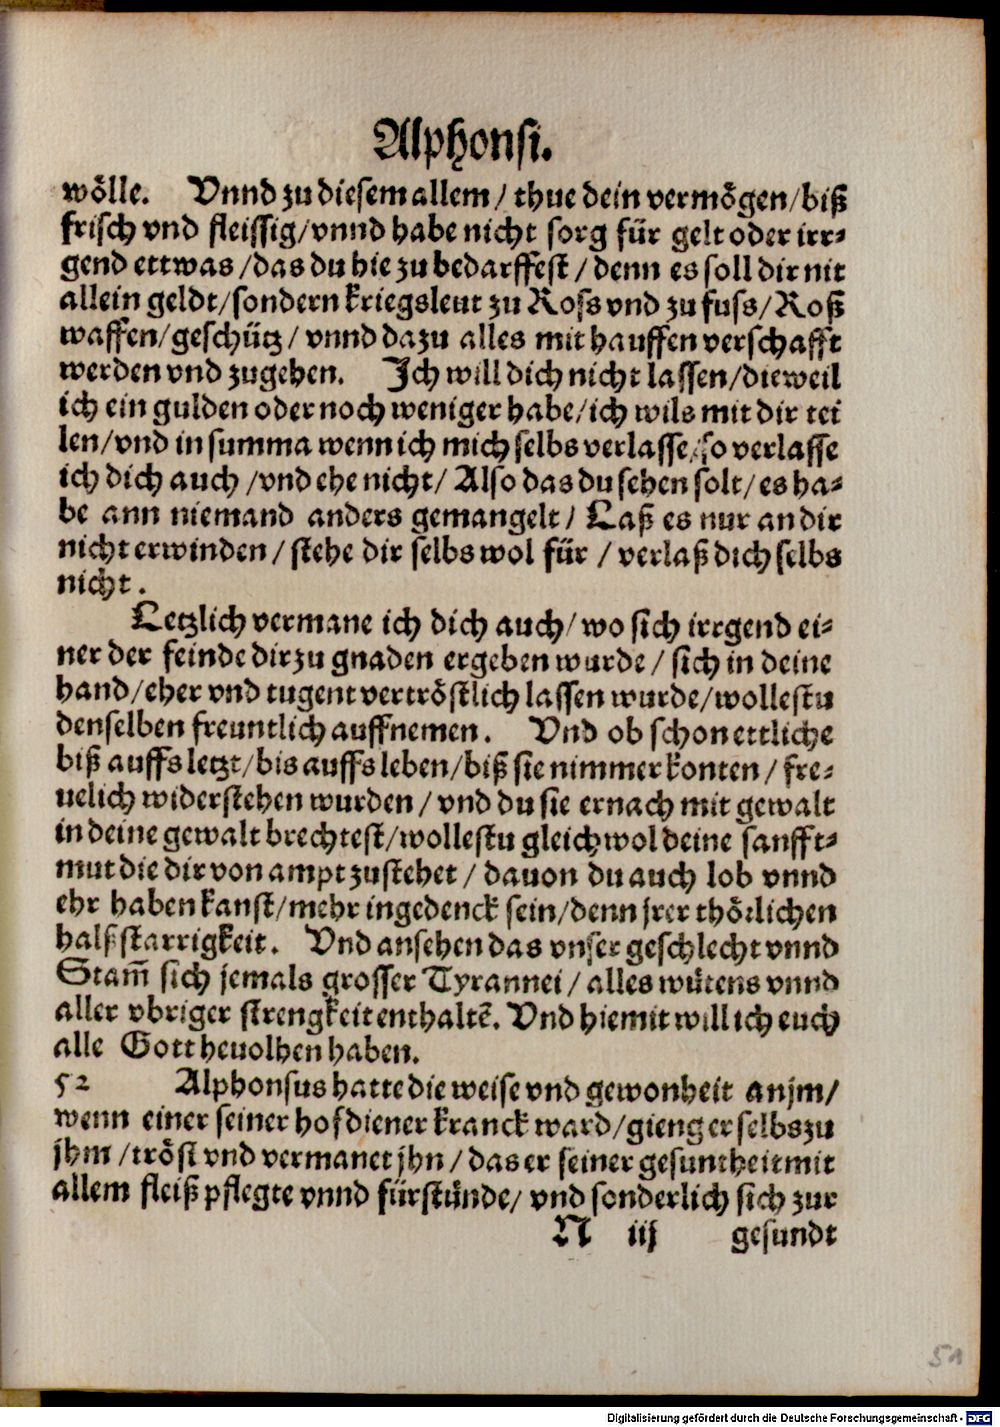 Alphonsi.
wölle. Vnnd zu diesem allem / thue dein vermögen/biß
frisch vnd fleissig/vnnd habe nicht sorg für gelt oder irr-
gend ettwas /das du hie zu bedarffest / denn es soll dir nit
allein geldt/sondern kriegsleut zu Ross vnd zu fuss/Roß
waffen/geschütz / vnnd dazu alles mit hauffen verschafft
werden vnd zugehen. Ich will dich nicht lassen/dieweil
ich ein gulden oder noch weniger habe/ich wils mit dir tei
len/vnd in summa wenn ich mich selbs verlasse/so verlasse
ich dich auch /vnd ehe nicht/ Also das du sehen solt/es ha-
be ann niemand anders gemangelt / Laß es nur an dir
nicht erwinden / stehe dir selbs wol für / verlaß dich selbs
nicht.
Letzlich vermane ich dich auch/ wo sich irrgend ei-
ner der feinde dir zu gnaden ergeben wurde / sich in deine
hand/eher vnd tugent vertröstlich lassen wurde/wollestu
denselben freuntlich auffnemen. Vnd ob schon ettliche
biß auffs letzt/bis auffs leben/biß sie nimmer konten / fre-
uelich widerstehen wurden / vnd du sie ernach mit gewalt
in deine gewalt brechtest/wollestu gleichwol deine sanfft-
mut die dir von ampt zustehet / dauon du auch lob vnnd
ehr haben kanst/mehr ingedenck sein/denn jrer thörlichen
halßstarrigkeit. Vnd ansehen das vnser geschlecht vnnd
Stam̄ sich jemals grosser Tyrannei / alles wütens vnnd
aller vbriger strengkeit enthaltē. Vnd hiemit will ich euch
alle Gott beuolhen haben.
52 Alphonsus hatte die weise vnd gewonheit an jm/
wenn einer seiner hofdiener kranck ward/gieng er selbs zu
jhm /tröst vnd vermanet jhn / das er seiner gesuntheit mit
allem fleiß pflegte vnnd fürstünde/ vnd sonderlich sich zur
N iij gesundt
51
Digitalisierung gefördert durch die Deutsche Forschungsgemeinschaft - DFG